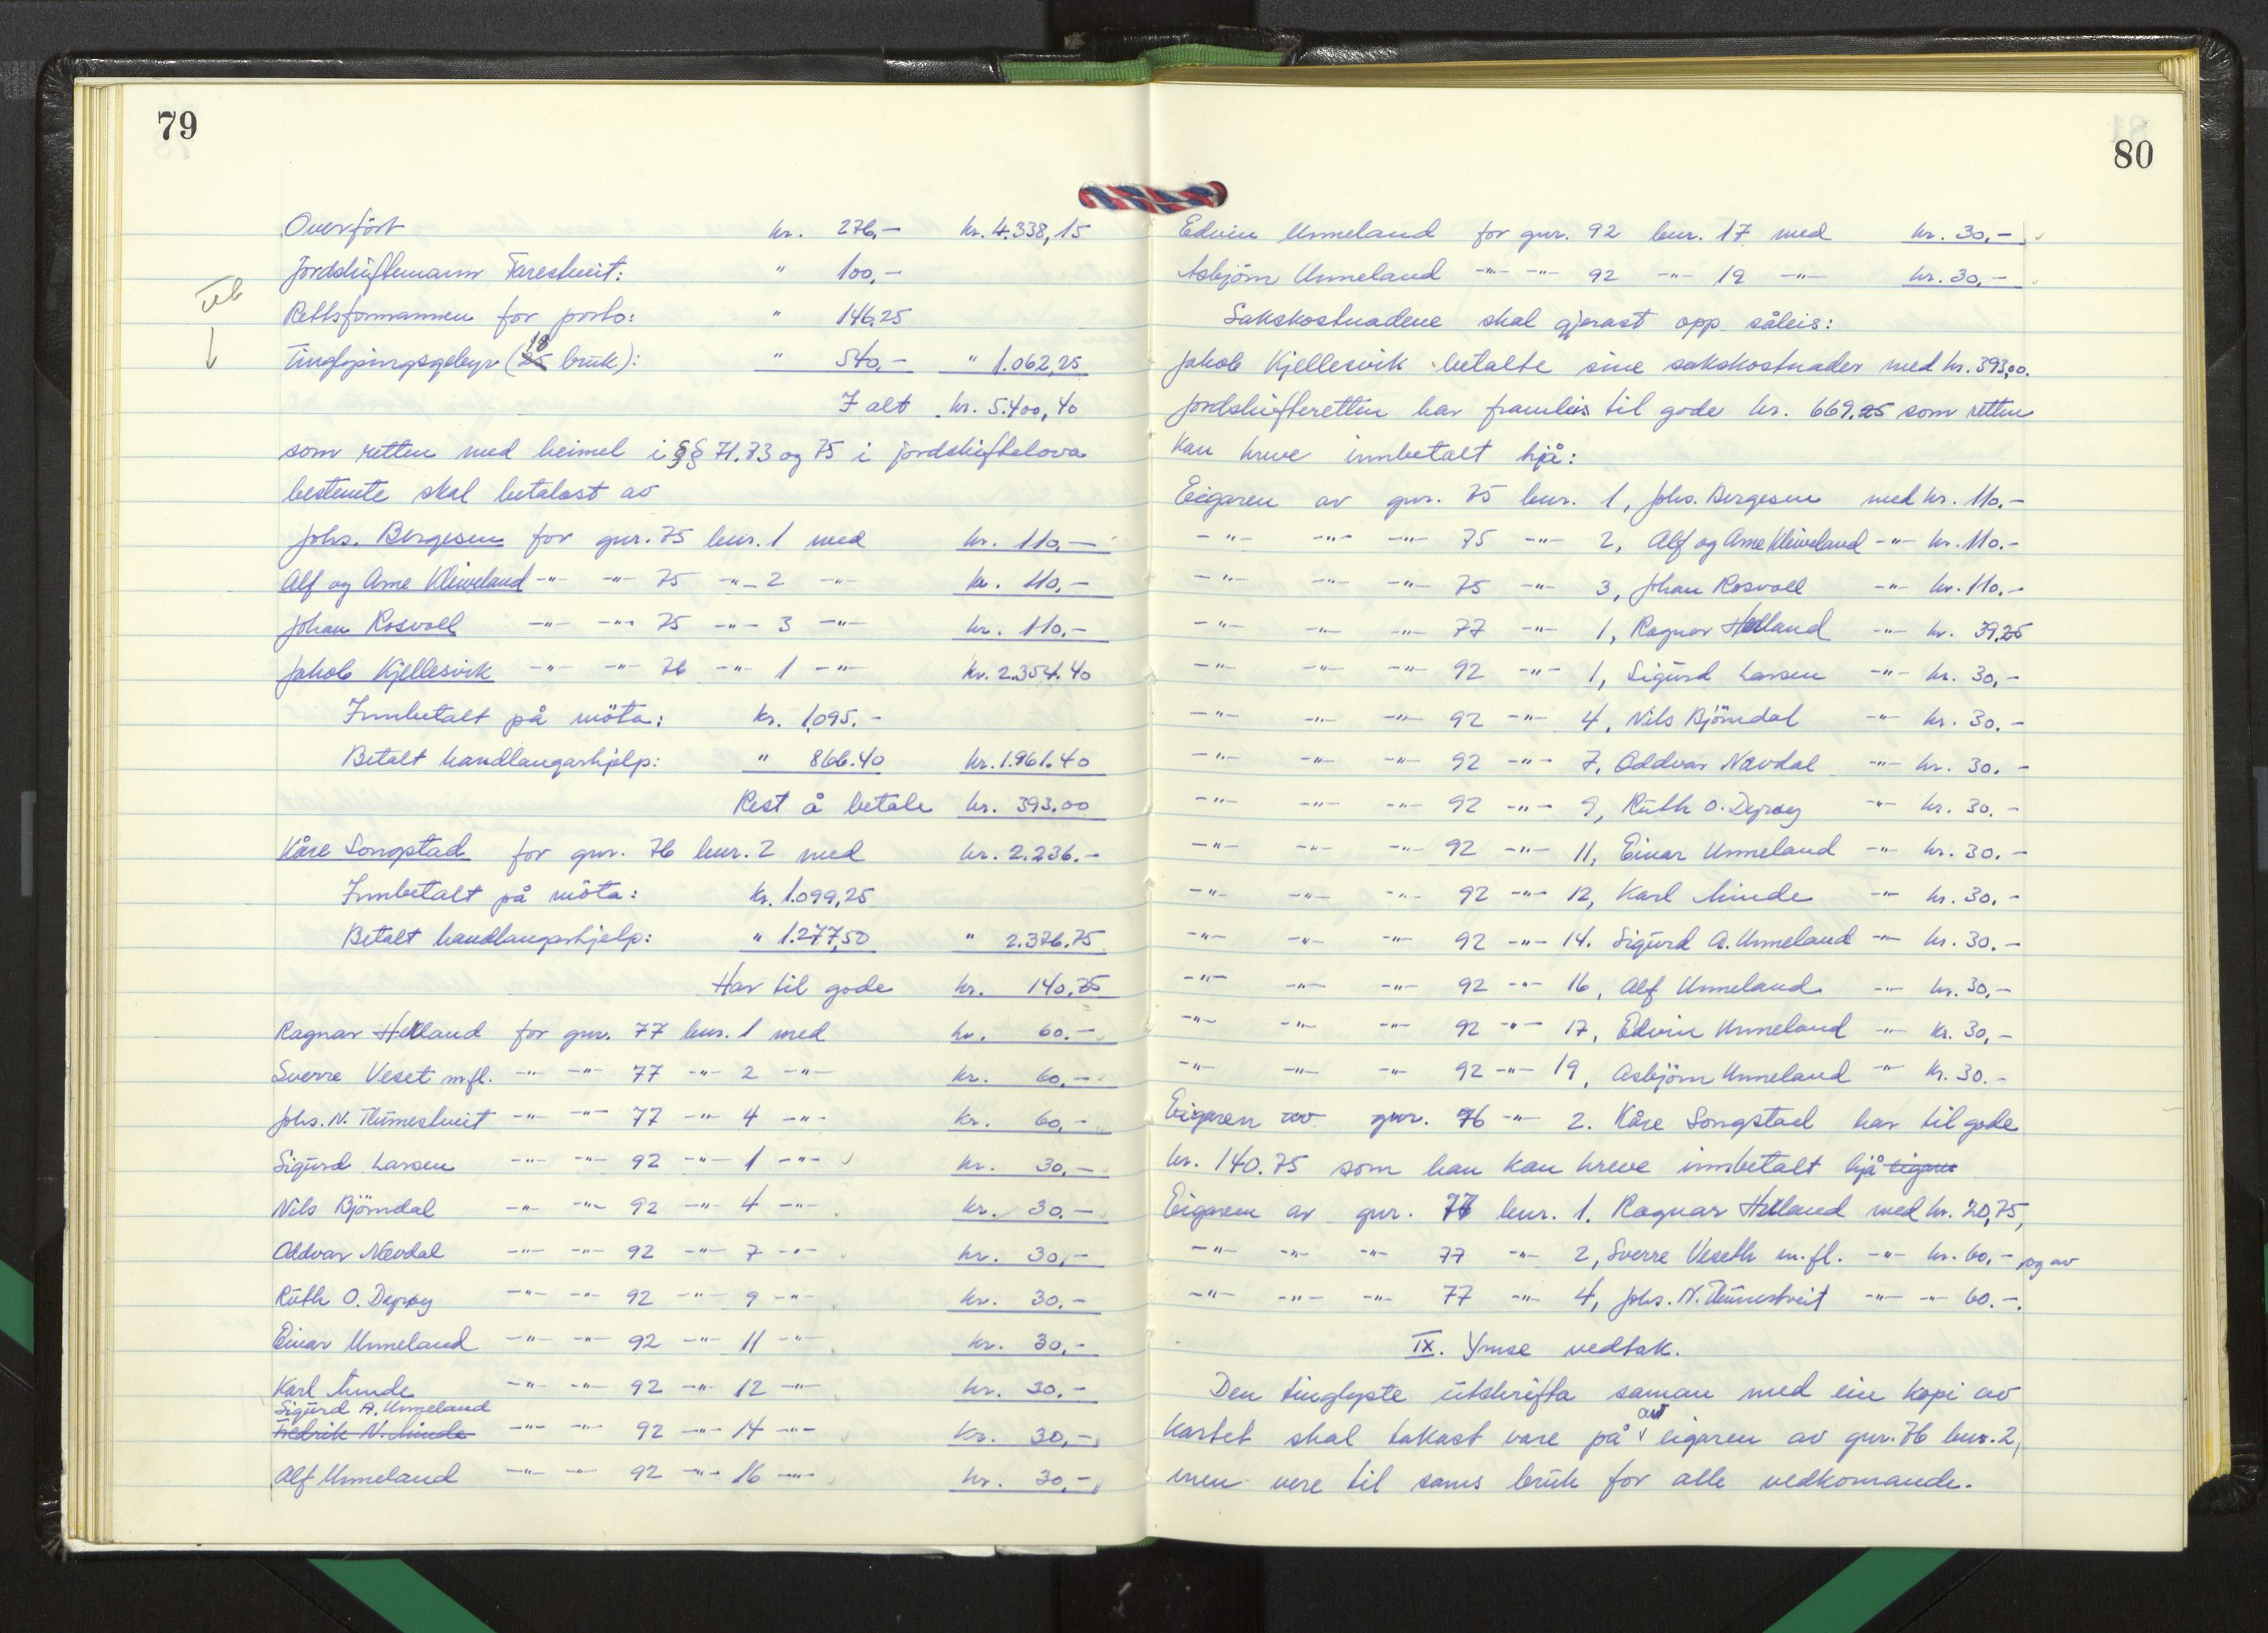 79
Overfört kr. 276,- kr. 4.338,15
Jordskiftemann Farestveit: " 100,-
Rettsformannen for porto: " 146,25
Tinglysingsgebyr (25 18 bruk): " 540,- " 1.062,25
I alt kr. 5.400,40
som retten med heimel i §§ 71.73 og 75 i jordskiftelova
bestemte skal betalast av
Johs. Bergesen for gnr. 75 bnr. 1 med kr. 110,-
Alf og Arne Kleiveland -"- -"- 75 -"- 2 -"- kr. 110,-
Johan Rosvoll -"- -"- 75 -"- 3 -"- kr. 110,-
Jakob Kjellesvik -"- -"- 76 -"- 1 -"- kr. 2.354.40
Innbetalt på möta: kr. 1.095.-
Betalt handlangarhjelp: " 866.40 kr. 1.961.40
Rest å betale kr. 393.00
Kåre Songstad for gnr. 76 bnr. 2 med kr. 2.236.-
Innbetalt på möta: kr. 1.099,25
Betalt handlangarhjelp: " 1.277,50 " 2.376.75
Har til gode kr. 140.75
Ragnar Helland for gnr. 77 bnr. 1 med kr. 60.-
Sverre Veset m.fl. -"- -"- 77 -"- 2 -"- kr. 60,-
Johs. N. Tunestveit -"- -"- 77 -"- 4 -"- kr. 60,-
Sigurd Larsen -"- -"- 92 -"- 1 -"- kr. 30,-
Nils Björndal -"- -"- 92 -"- 4 -"- kr. 30.-
Oddvar Nævdal -"- -"- 92 -"- 7 -"- kr. 30,-
Ruth O. Depøy -"- -"- 92 -"- 9 -"- kr. 30.-
Einar Unneland -"- -"- 92 -"- 11 -"- kr. 30,-
Karl Minde -"- -"- 92 -"- 12 -"- kr. 30.-
Sigurd A. Unneland
Fredrik N. Minde -"- -"- 92 -"- 14 -"- kr. 30,-
Alf Unneland -"- -"- 92 -"- 16 -"- kr. 30,-
80
Edvin Unneland for gnr. 92 bnr. 17 med kr. 30,-
Asbjörn Unneland -"- -"- 92 -"- 19 -"- kr. 30,-
Sakskostnadene skal gjerast opp såleis:
Jakob Kjellesvik betalte sine sakskostnader med kr. 393,00.
Jordskifteretten har framleis til gode kr. 669.25 som retten
kan kreve innbetalt hjå:
Eigaren av gnr. 75 bnr. 1, Johs. Bergesen med kr. 110.-
-"- -"- -"- 75 -"- 2, Alf og Arne Kleiveland -"- kr. 110.-
-"- -"- -"- 75 -"- 3, Johan Rosvoll -"- kr. 110.-
-"- -"- -"- 77 -"- 1, Ragnar Helland -"- kr. 39.25
-"- -"- -"- 92 -"- 1, Sigurd Larsen -"- kr. 30,-
-"- -"- -"- 92 -"- 4, Nils Björndal -"- kr. 30.-
-"- -"- -"- 92 -"- 7, Oddvar Nævdal -"- kr. 30.-
-"- -"- -"- 92 -"- 9, Ruth O. Depøy -"- kr. 30.-
-"- -"- -"- 92 -"- 11, Einar Unneland -"- kr. 30.-
-"- -"- -"- 92 -"- 12, Karl Minde -"- kr. 30.-
-"- -"- -"- 92 -"- 14. Sigurd A. Unneland -"- kr. 30.-
-"- -"- -"- 92 -"- 16, Alf Unneland -"- kr. 30,-
-"- -"- -"- 92 -"- 17, Edvin Unneland -"- kr. 30,-
-"- -"- -"- 92 -"- 19, Asbjörn Unneland -"- kr. 30.-
Eigaren av gnr. 76 -"- 2. Kåre Songstad har til gode
kr. 140.75 som han kan kreve innbetalt hjå eigaren
Eigaren av gnr. 77 bnr. 1. Ragnar Helland med kr. 20,75,
-"- -"- -"- 77 -"- 2, Sverre Veseth m.fl. -"- kr. 60,- og av
-"- -"- -"- 77 -"- 4, Johs. N. Tunestveit -"- -"- 60.-.
IX. Ymse vedtak.
Den tinglyste utskrifta saman med ein kopi av
kartet skal takast vare på av eigaren av gnr. 76 bnr. 2,
men vere til sams bruk for alle vedkomande.